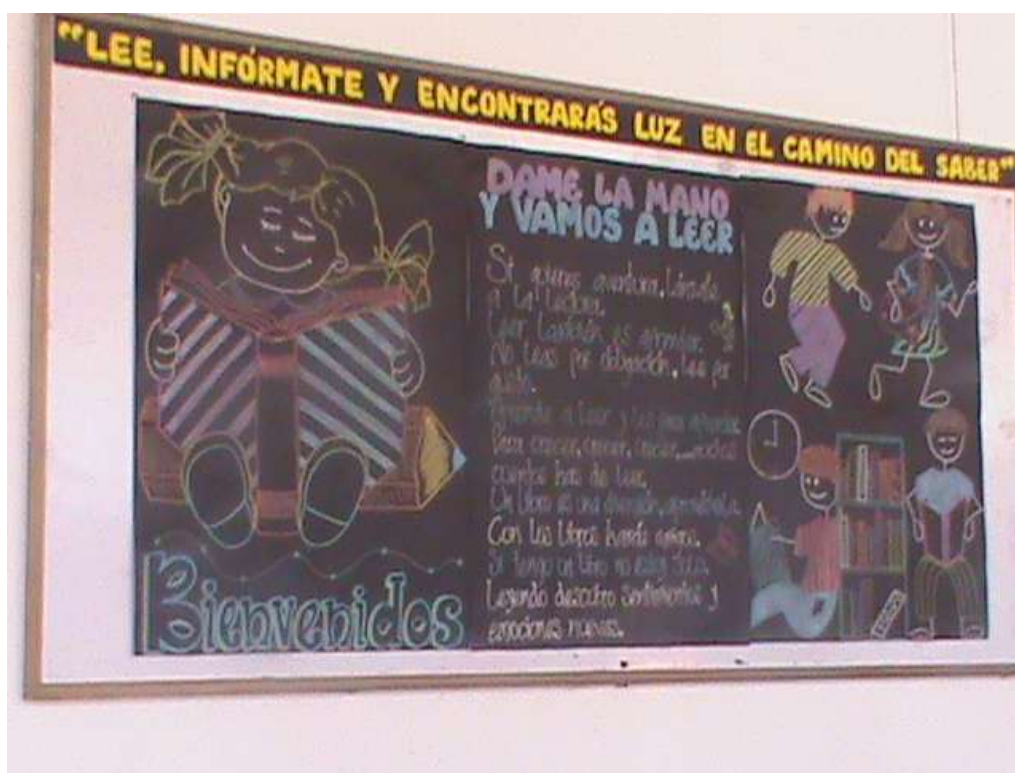 "LEE, INFÓRMATE Y ENCONTRARÁS LUZ EN EL CAMINO DEL SABER"
DAME LA MANO
Y VAMOS A LEER
Si quieres aventura, Lánzate
a La Lectura.
Leer también es aprender.
No leas por obligación, lee por
gusto.
Aprende a leer y lee para aprender.
Para crecer, crecer, crecer, muchos
cuentos has de leer.
Un libro es una diversión,
Con los libros harás amigos.
Si tengo un libro no estoy solo.
Leyendo descubro sentimientos y
emociones nuevas.
Bienvenidos